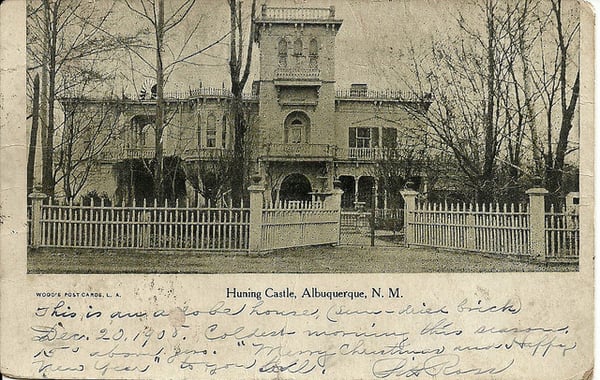 WOOD'S POST CARDS, L. A.
Huning Castle, Albuquerque, N. M.
This is an adobe house, (sun-dried brick
Dec. 20, 1905. Coldest morning this season,
15° above zero. "Merry Christmas and Happy
New Year" to you all!
Ross